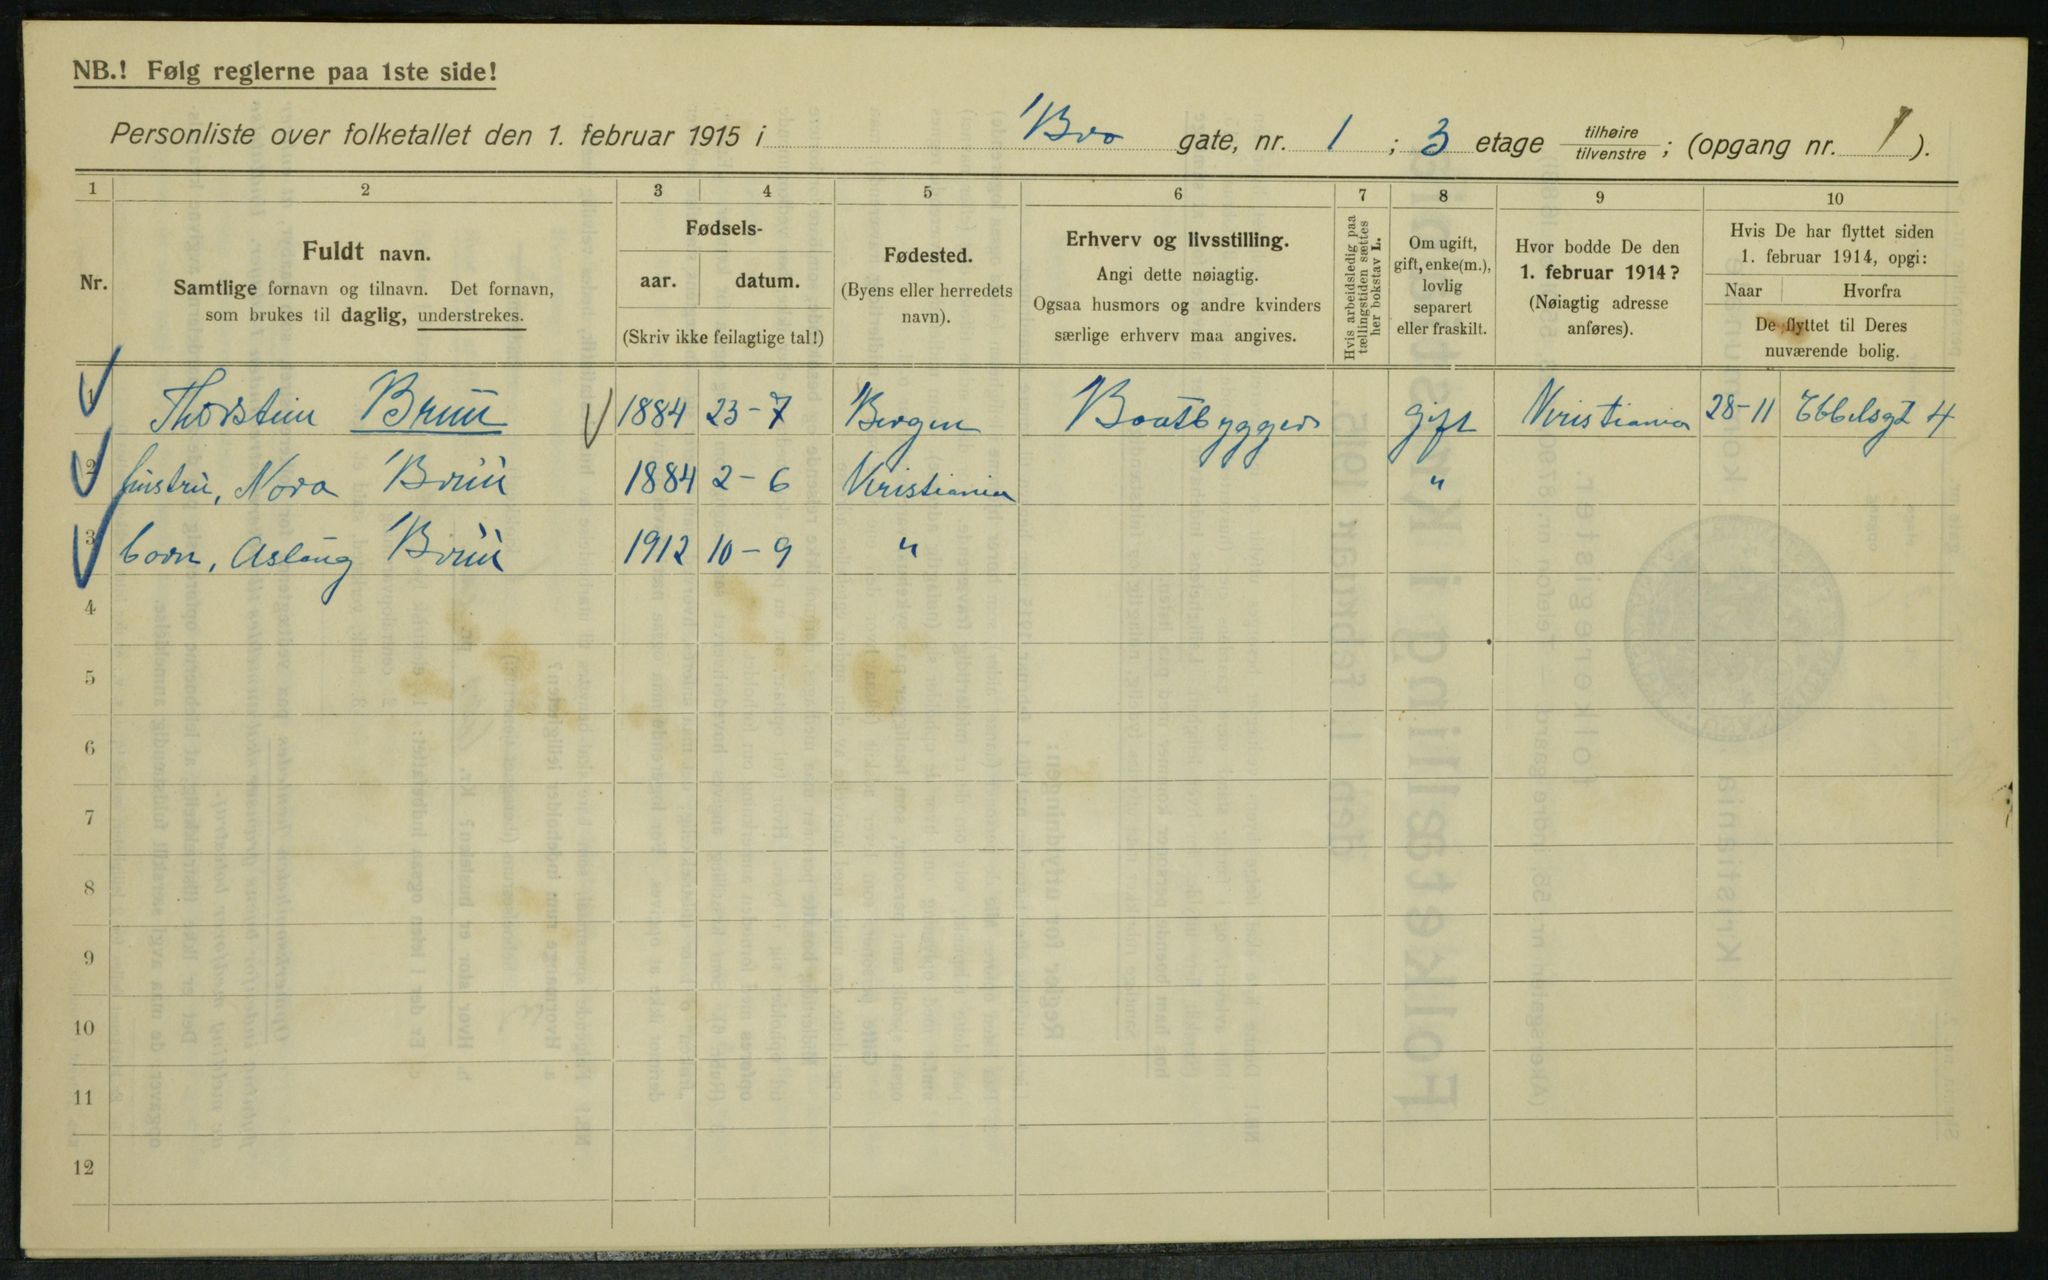 NB.! Følg reglerne paa 1ste side!
Personliste over folketallet den 1. februar 1915 i Bro gate, nr. 1 ; 3 etage tilhøire / tilvenstre ; (opgang nr. 1 ).
1 2 3 4 5 6 7 8 9 10
Nr.
Fuldt navn.
Samtlige fornavn og tilnavn. Det fornavn,
som brukes til daglig, understrekes.
Fødsels-
aar. datum.
(Skriv ikke feilagtige tal!)
Fødested.
(Byens eller herredets
navn).
Erhverv og livsstilling.
Angi dette nøiagtig.
Ogsaa husmors og andre kvinders
særlige erhverv maa angives.
Hvis arbeidsledig paa
tællingstiden sættes
her bokstav L.
Om ugift,
gift, enke(m.),
lovlig
separert
eller fraskilt.
Hvor bodde De den
1. februar 1914?
(Nøiagtig adresse
anføres).
Hvis De har flyttet siden
1. februar 1914, opgi:
Naar Hvorfra
De flyttet til Deres
nuværende bolig.
1 Thorstein Bruu 1884 23-7 Bergen Baatbygger gift Kristiania 28-11 4
2 hustru, Nora Bruu 1884 2-6 Kristiania "
3 barn, Aslaug Bruu 1912 10-9 "
4
5
6
7
8
9
10
11
12